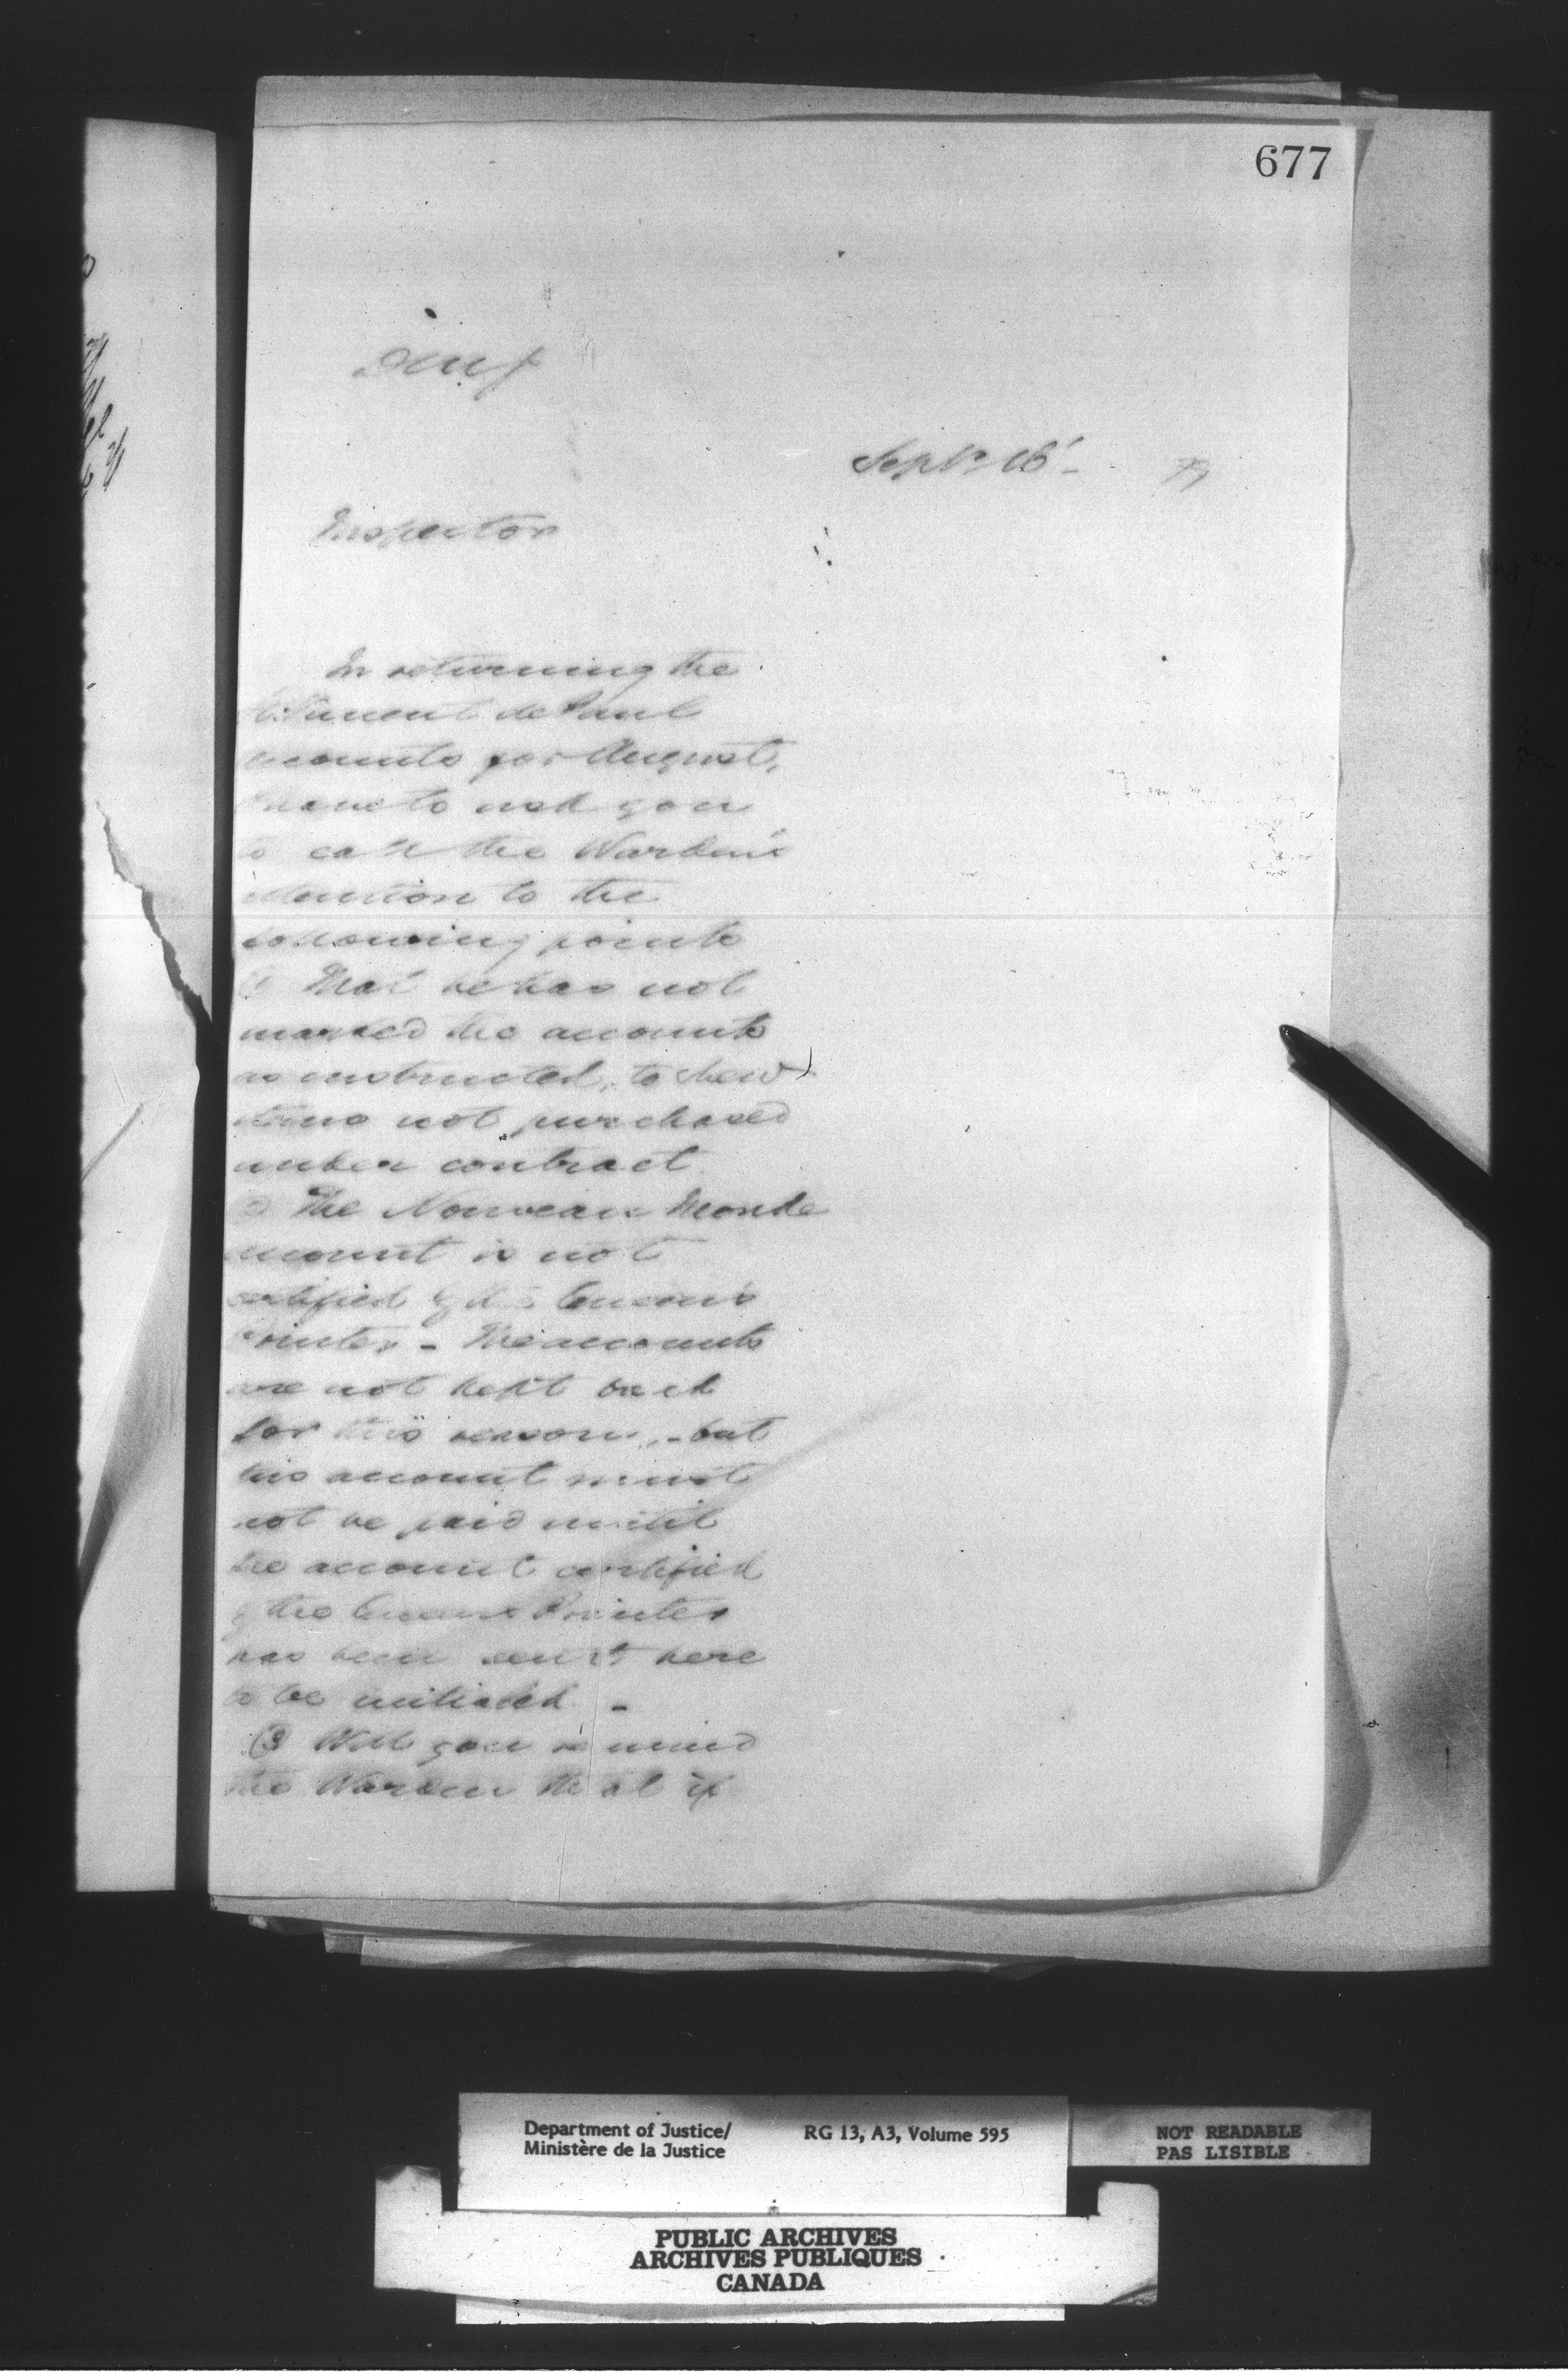 677
Sept. 16 - 79
Inspector
In returning the
St. Vincent de Paul
accounts for August,
I have to ask you
to call the Warden's
attention to the
following points
(1) That he has not
marked the accounts
as instructed, to shew
items not purchased
under contract
(2) The Nouveau Monde
account is not
certified by the Queen's
Printer - The accounts
are not kept back
for this reason, - but
this account must
not be paid until
the account certified
by the Queens Printer
has been sent here
to be initialed -
(3) Will you remind
the Warden that if
Department of Justice/
Ministère de la Justice
RG 13, A3, Volume 595
NOT READABLE
PAS LISIBLE
PUBLIC ARCHIVES
ARCHIVES PUBLIQUES
CANADA